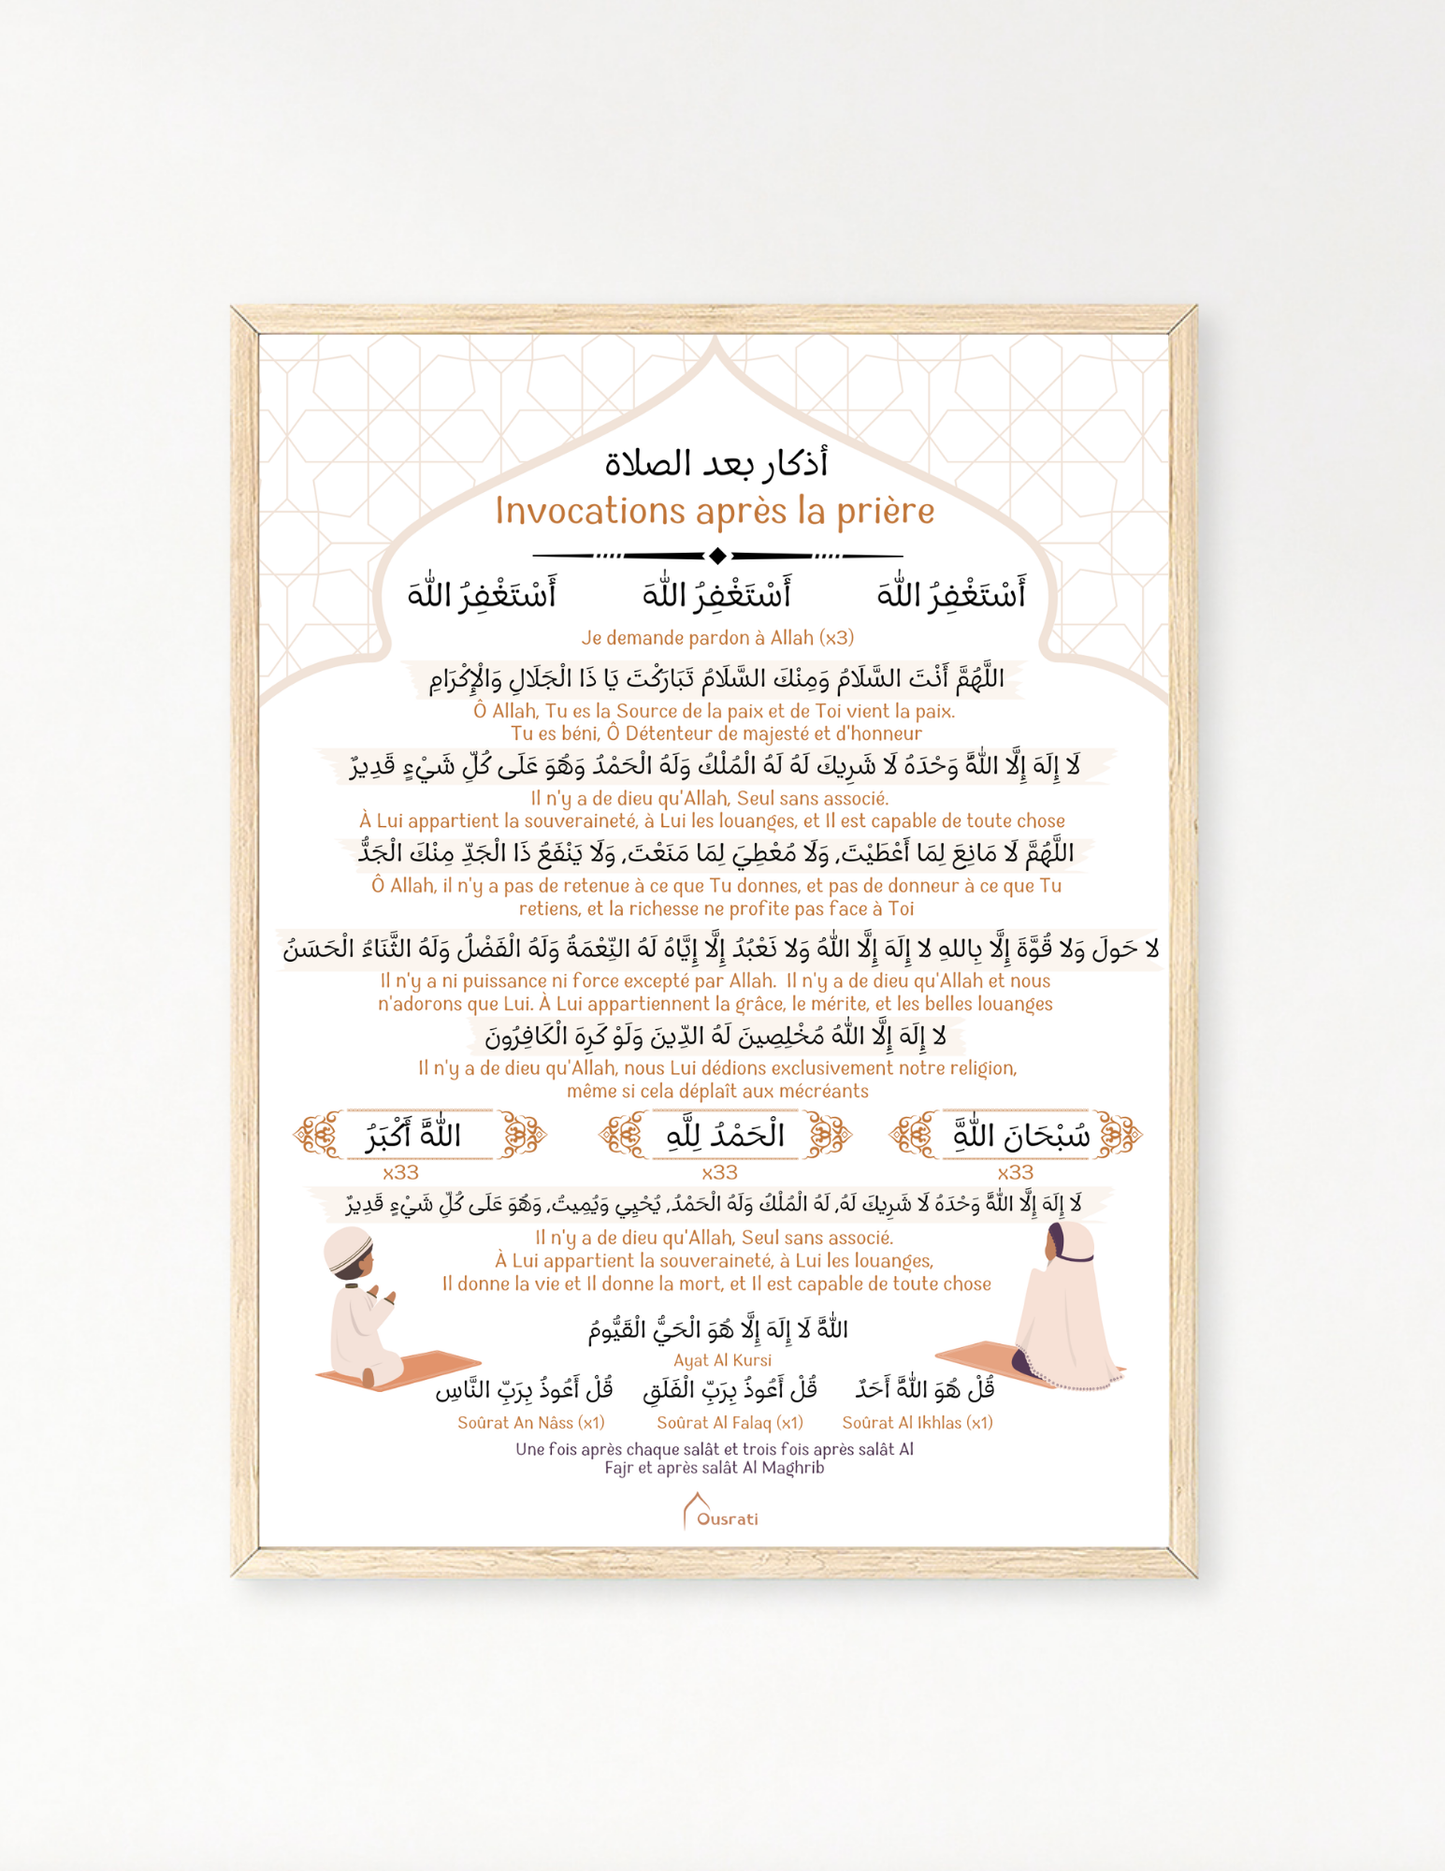 أذكار بعد الصلاة
Invocations après la prière
أَسْتَغْفِرُ اللّٰهَ أَسْتَغْفِرُ اللّٰهَ أَسْتَغْفِرُ اللّٰهَ
Je demande pardon à Allah (x3)
اللَّهُمَّ أَنْتَ السَّلَامُ وَمِنْكَ السَّلَامُ تَبَارَكْتَ يَا ذَا الْجَلَالِ وَالْإِكْرَامِ
Ô Allah, Tu es la Source de la paix et de Toi vient la paix.
Tu es béni, Ô Détenteur de majesté et d'honneur
لَا إِلَهَ إِلَّا اللّٰهَُ وَحْدَهُ لَا شَرِيكَ لَهُ لَهُ الْمُلْكُ وَلَهُ الْحَمْدُ وَهُوَ عَلَى كُلِّ شَيْءٍ قَدِيرٌ
Il n'y a de dieu qu'Allah, Seul sans associé.
À Lui appartient la souveraineté, à Lui les louanges, et Il est capable de toute chose
اللَّهُمَّ لَا مَانِعَ لِمَا أَعْطَيْتَ, وَلَا مُعْطِيَ لِمَا مَنَعْتَ, وَلَا يَنْفَعُ ذَا الْجَدِّ مِنْكَ الْجَدُّ
Ô Allah, il n'y a pas de retenue à ce que Tu donnes, et pas de donneur à ce que Tu
retiens, et la richesse ne profite pas face à Toi
لا حَولَ وَلا قُوَّةَ إِلَّا بِاللهِ لا إِلَهَ إِلَّا اللّٰهُ وَلا نَعْبُدُ إِلَّا إِيَّاهُ لَهُ النِّعْمَةُ وَلَهُ الْفَضْلُ وَلَهُ الثَّنَاءُ الْحَسَنُ
Il n'y a ni puissance ni force excepté par Allah. Il n'y a de dieu qu'Allah et nous
n'adorons que Lui. À Lui appartiennent la grâce, le mérite, et les belles louanges
لا إِلَهَ إِلَّا اللّٰهُ مُخْلِصِينَ لَهُ الدِّينَ وَلَوْ كَرِهَ الْكَافِرُونَ
Il n'y a de dieu qu'Allah, nous Lui dédions exclusivement notre religion,
même si cela déplaît aux mécréants
سُبْحَانَ اللّٰهَِ الْحَمْدُ لِلَّهِ اللّٰهَُ أَكْبَرُ
x33 x33 x33
لَا إِلَهَ إِلَّا اللّٰهَُ وَحْدَهُ لَا شَرِيكَ لَهُ, لَهُ الْمُلْكُ وَلَهُ الْحَمْدُ, يُحْيِي وَيُمِيتُ, وَهُوَ عَلَى كُلِّ شَيْءٍ قَدِيرٌ
Il n'y a de dieu qu'Allah, Seul sans associé.
À Lui appartient la souveraineté, à Lui les louanges,
Il donne la vie et Il donne la mort, et Il est capable de toute chose
اللّٰهَُ لَا إِلَهَ إِلَّا هُوَ الْحَيُّ الْقَيُّومُ
Ayat Al Kursi
قُلْ هُوَ اللّٰهَُ أَحَدٌ قُلْ أَعُوذُ بِرَبِّ الْفَلَقِ قُلْ أَعُوذُ بِرَبِّ النَّاسِ
Soûrat An Nâss (x1) Soûrat Al Falaq (x1) Soûrat Al Ikhlas (x1)
Une fois après chaque salât et trois fois après salât Al
Fajr et après salât Al Maghrib
Ousrati